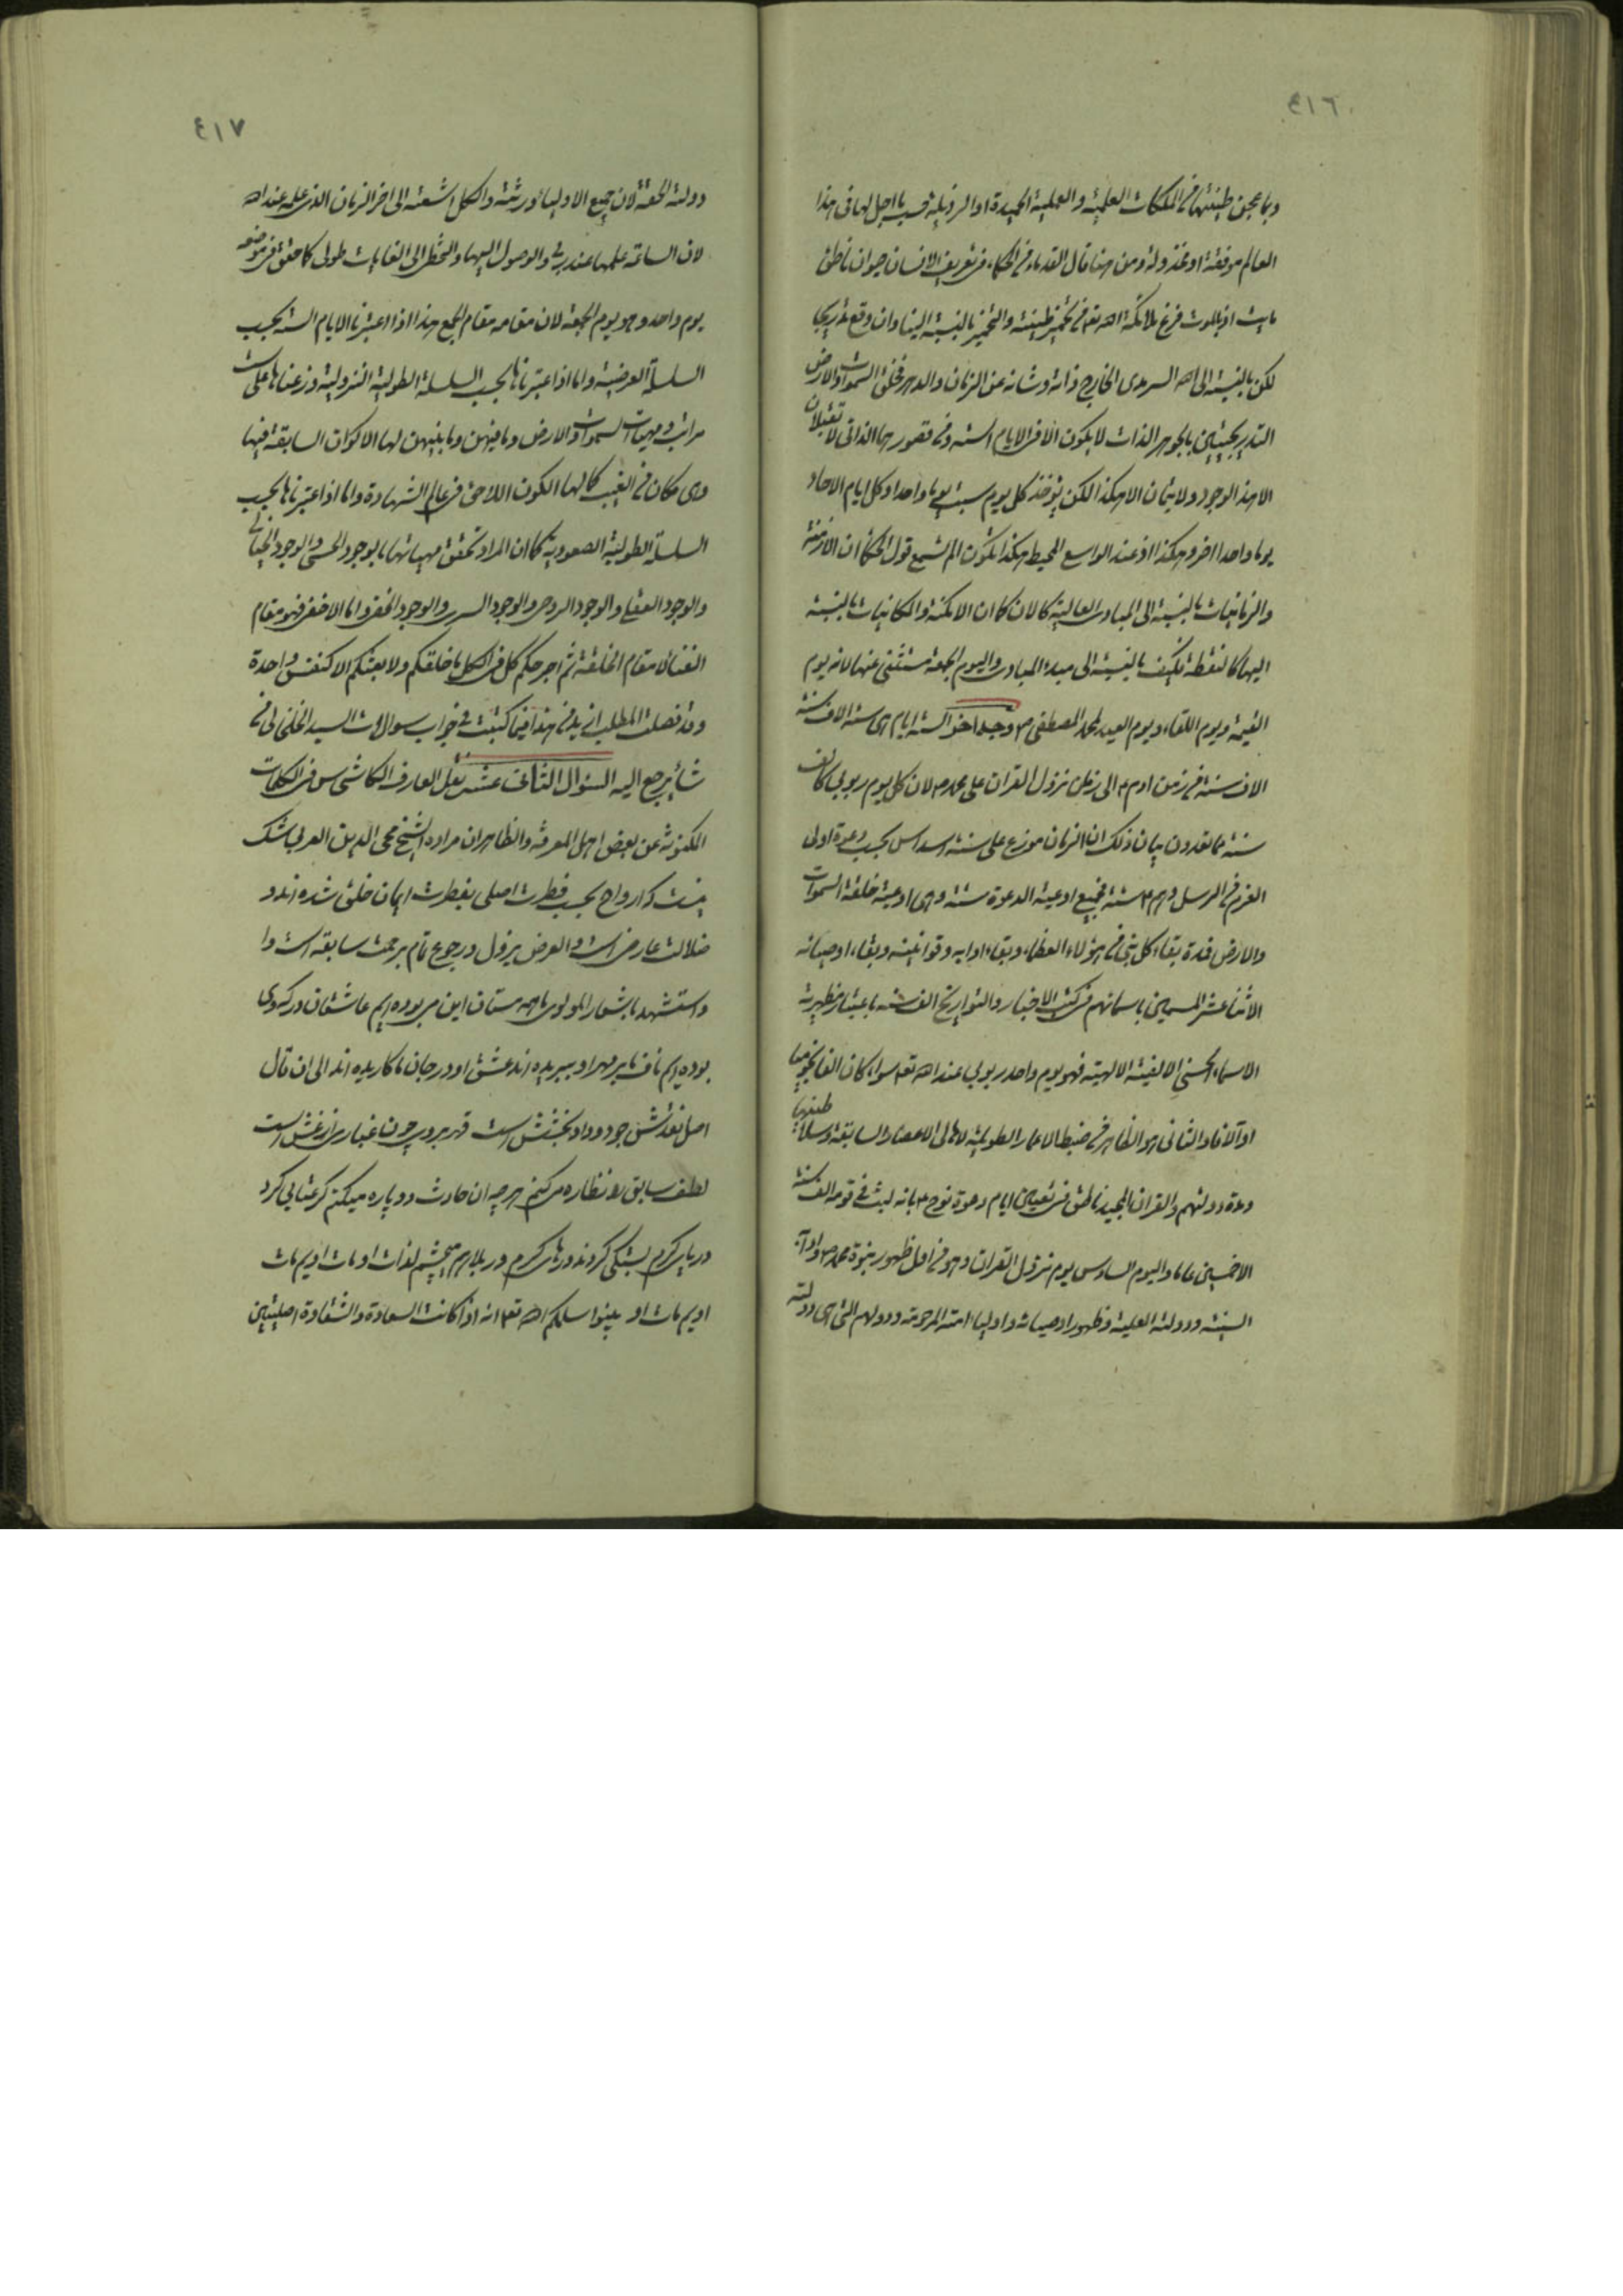 ٤١٦
وبما عجن طينتها من الملكات العلمية والعملية الحميدة او الرذيلة حسب ما اجل لها فى هذا
العالم موفقة او مخذولة ومن هنا قال القدماء من الحكماء فى تعريف الانسان حيوان ناطق
مايت اذ بالموت فرغ ملائكة الله تعالى من تخمير طينته والتخمير بالنسبة الينا وان وقع تدريجا
لكن بالنسبة الى الله السرمدى الخارج ذاته وشانه عن الزمان والدهر فخلق السموات والارض
التدريجيتين بالجوهر الذات لا يكون الا فى الايام الستة ومن قصورهما الذاتى لا تقبلان
الا هذا الوجود ولا يتمان الا هكذا لكن يؤخذ كل يوم سبت يوما واحدا وكل ايام الاحاد
يوما واحدا اخر وهكذا اذ عند الواسع المحيط هكذا يكون الم تسمع قول الحكماء ان الازمنة
والزمانيات بالنسبة الى المبادى العالية كالان كما ان الامكنة والمكانيات بالنسبة
اليها كالنقطة فكيف بالنسبة الى مبدء المبادى واليوم الجمعة مستثنى عنها لانه يوم
القيمة ويوم اللقاء ويوم العيد لمحمد المصطفى ص وجه اخر الستة ايام هى ستة الاف سنة
الاف سنة من زمن ادم ع الى زمان نزول القران على محمد ص لان كل يوم ربوبى كالف
سنة مما تعدون بيان ذلك ان الزمان موزع على ستة اسداس بحسب دعوة اولى
العزم من الرسل وهم ع ستة فجميع اوعية الدعوة ستة وهى اوعية خلقة السموات
والارض فمدة بقاء كل نبى من هؤلاء العظماء وبقاء ادابه وقوانينه وبقاء اوصيائه
الاثناعشر المسمين باسمائهم فى كتب الاخبار والتواريخ الف سنة باعتبار مظهرية
الاسماء الحسنى الالفية الالهية فهو يوم واحد ربوبى عند الله تعالى سواء كان الفا نجوميا
او الافا والثانى هو الظاهر فى ضبط الاعمار الطويلة لاهالى الاعصار السابقة وسلاطينها
ومدة دولتهم والقران المجيد ناطق فى تعيين ايام دعوة نوح ع بانه لبث فى قومه الف سنة
الا خمسين عاما واليوم السادس يوم نزول القران وهو من اول ظهور نبوة محمد ص وادابه
السنية ودولته العلية وظهور اوصيائه واولياء امته المرحومة ودولهم التى هى دولته
٤١٧
دولته الحقة لان جميع الاولياء ورثته والكل اشعته الى اخر الزمان الذى علمه عند الله
لان الساعة علمها عند ربى والوصول اليها والتخطى الى الغايات طولى كما حقق فى موضعه
يوم واحد وهو يوم الجمعة لان مقامه مقام الجمع هذا اذا اعتبرنا الايام الستة بحسب
السلسلة العرضية واما اذا اعتبرناها بحسب السلسلة الطولية النزولية وزعناها على ست
مراتب ومهيات السموات والارض وما فيهن وما بينهن لها الاكوان السابقة فيها
وهى مكان فى الغيب كما لها الكون اللاحق فى عالم الشهادة واما اذا اعتبرناها بحسب
السلسلة الطولية الصعودية كما ان المراد تحقق مهياتها بالوجود الحسى والوجود الخيالى
والوجود العقلى والوجود الروحى والوجود السرى والوجود الخفى واما الاخفى فهو مقام
الفناء لا مقام الخلقة ثم اخرجكم كل فى الكل ما خلقكم ولا بعثكم الا كنفس واحدة
وقد فصلت المطلب ازيد من هذا فيما كتبت فى جواب سوالات السيد الخلخالى فمن
شاء يرجع اليه السؤال الثانى عشر نقل العارف الكاشى س فى الكلمات
المكنونة عن بعض اهل المعرفة والظاهر ان مراده الشيخ محى الدين العربى شك
نيست كه ارواح بحسب فطرت اصلى بفطرت ايمان خلق شده اند و
ضلالت عارض است والعرض يزول ورجوع تام برحمت سابقه است وا
واستشهد باشعار المولوى ما همه مستان اين مى بوده ايم عاشقان درگه وى
بوده ايم ناف ما بر مهر او ببريده اند عشق او در جان ما كاريده اند الى ان قال
اصل نقدش جود وداد وبخشش است قهر بر وى چون غبارى از غش است
لطف سابق را نظاره ميكنم هرچه ان حادث دو پاره ميكنم گر عتابى كرد
درياى كرم بسته كى كردند درهاى كرم در بلا هم ميچشم لذات او مات اويم مات
اويم مات او بينوا سلمكم الله تعالى انه اذا كانت السعادة والشقاوة اصليتين